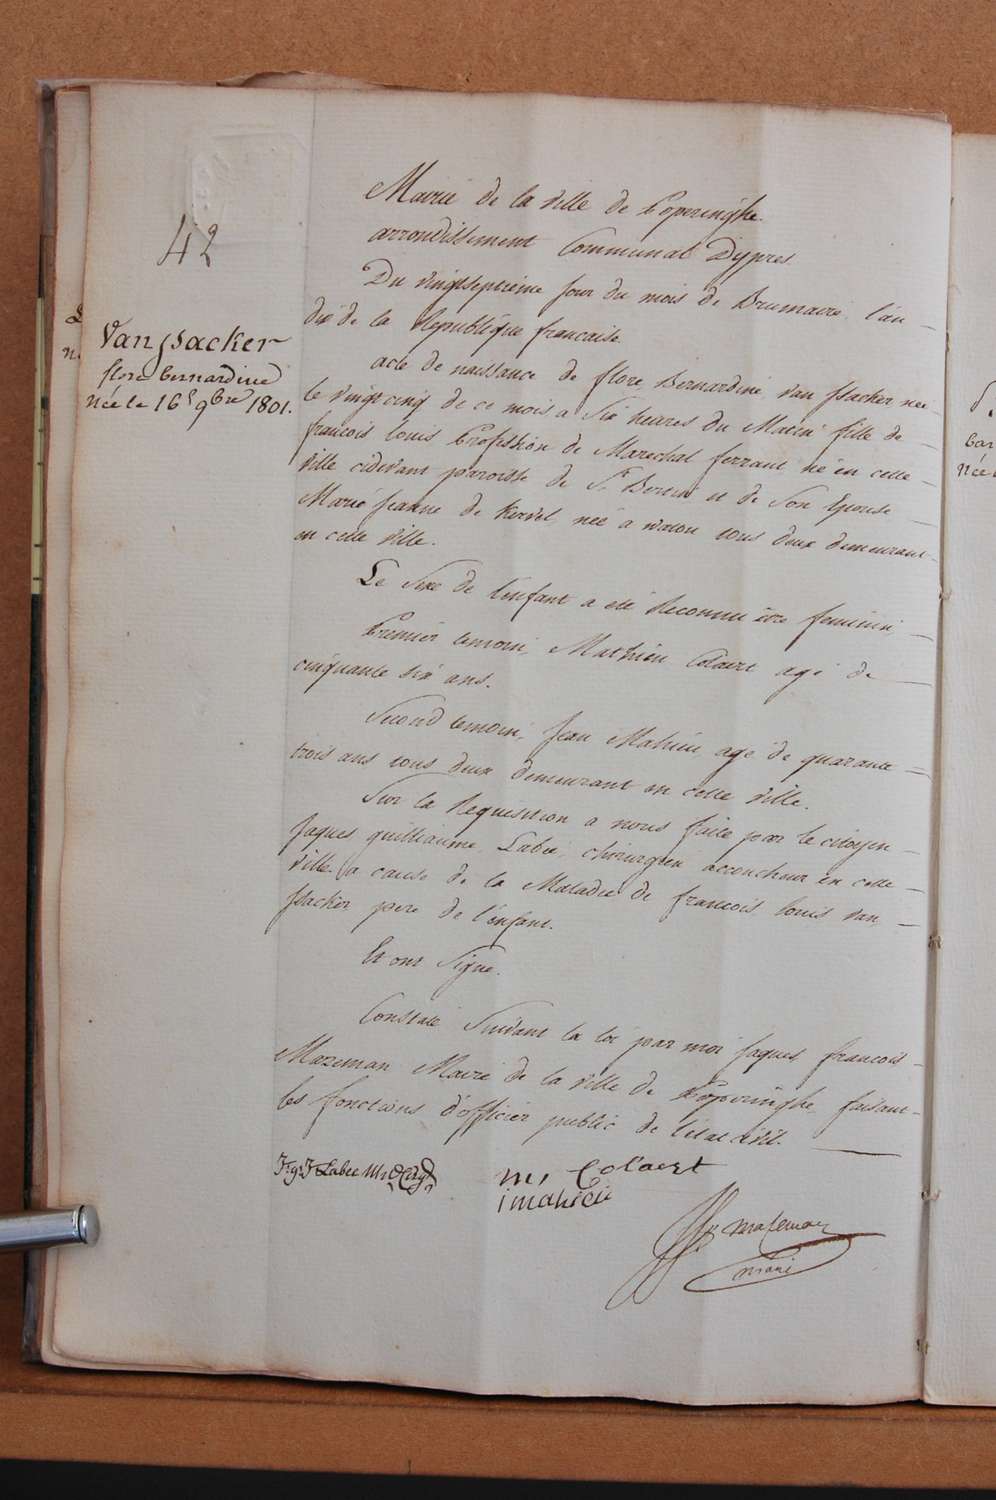 42
Van Jsacker
flore bernardine
née le 16 9bre 1801.
Mairie de la ville de Poperinghe
arrondissement Communal Dypres
Du vingtseptieme jour du mois de Brumaire l'an
dix de la Republique francaise
acte de naissance de flore Bernardine van Jsacker nee
le vingt cinq de ce mois a Six heures du Matin fille de
francois louis Profession de Marechal ferrant né en cette
ville cidevant paroisse de St Bertin et de Son Epouse
Marie Jeanne de Kervel née a watou tous deux demeurant
en cette ville.
Le Sexe de l'enfant a eté Reconnu etre feminin
Premier temoin, Mathieu Colaert agé de
cinquante six ans.
Second temoin, Jean Mahieu agé de quarante
trois ans tous deux demeurant en cette ville.
Sur la Requisition a nous faite par le citoyen
Jaques guilliaume Labee, chirurgien accoucheur en cette
ville a cause de la Maladie de francois louis van
Jsacker pere de l'enfant.
Et ont Signé.
Constaté Suivant la loi par moi Jaques francois
Mazeman Maire de la ville de Poperinghe faisant
les fonctions d'officier public de l'etat civil.
Labee
m, Colaert
i mahieu
Mazeman
maire